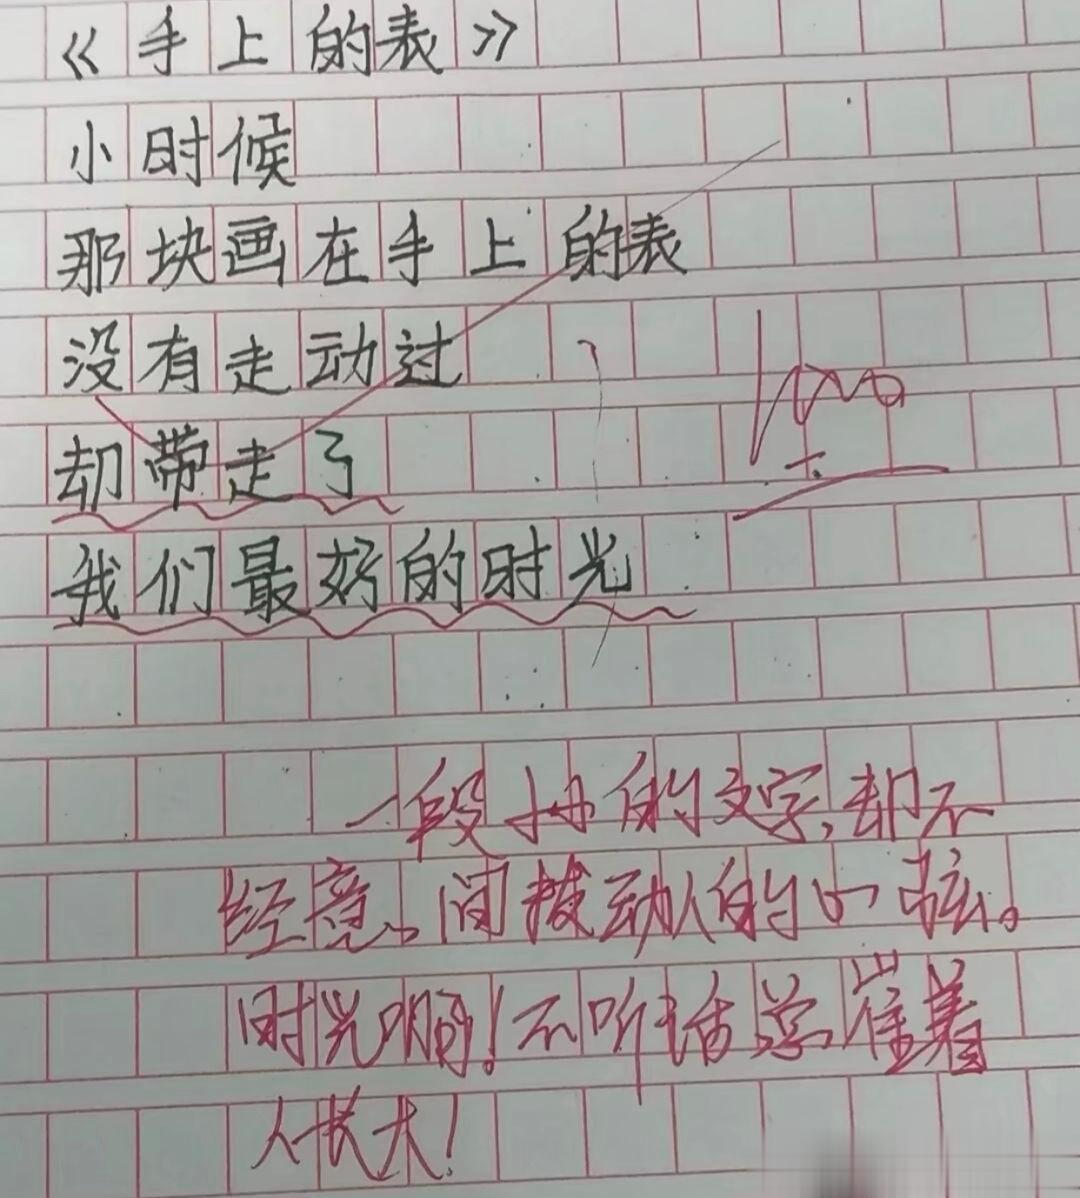 《手上的表》
小时候
那块画在手上的表
没有走动过
却带走了
我们最好的时光
100
一段小小的文字,却不
经意间拨动人的心弦。
时光啊!不听话,总崔着
人长大!